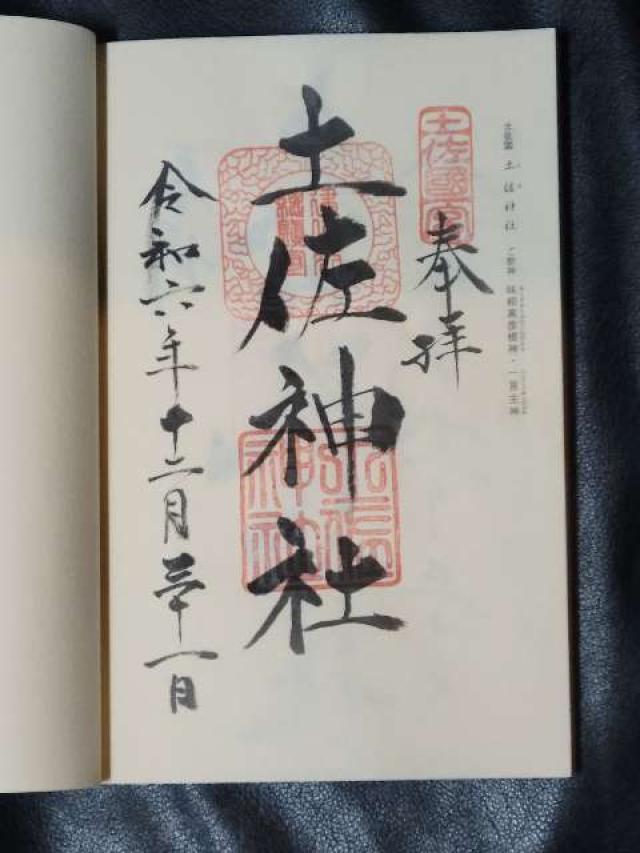 土佐國 土佐神社 ご祭神 味鋤高彦根神・一言主神
土佐國一宮
奉拝
土佐神社
土佐神社
令和六年十二月三十一日